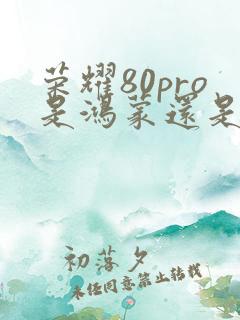 荣耀80pro
是鸿蒙还是
初落夕
未经同意禁止转载